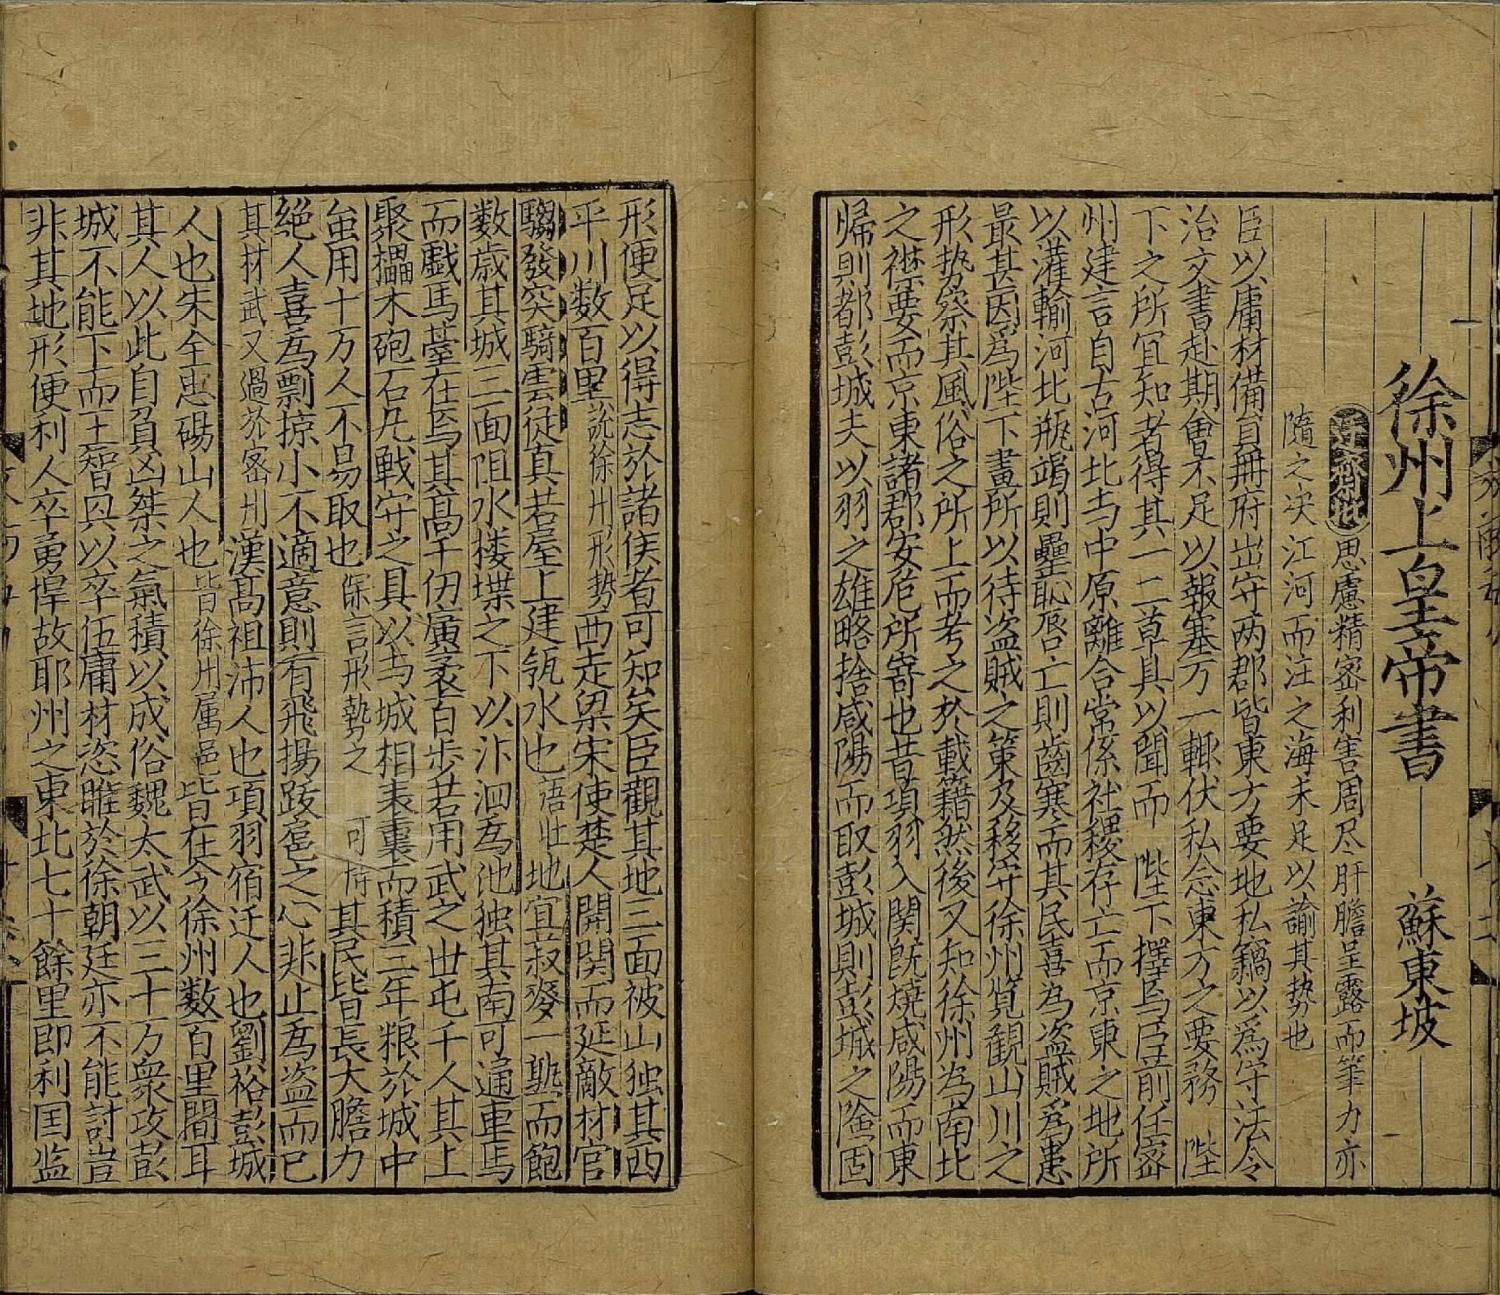 徐州上皇帝書 蘇東坡
思慮精密利害周尽肝膽呈露而筆力亦
隨之决江河而注之海未足以諭其势也
臣以庸材備員冊府出守两郡皆東方要地私竊以為守法令
治文書赴期會不足以報塞万一輒伏私念東方之要務 陛
下之所宜知者得其一二草具以聞而 陛下擇焉臣前任密
州建言自古河北与中原離合常係社稷存亡而京東之地所
以灌輸河北瓶竭則罍恥唇亡則齒寒而其民喜為盗賊為患
最甚因為陛下畫所以待盗賊之策及移守徐州覧観山川之
形势察其風俗之所上而考之於載籍然後又知徐州為南北
之襟要而京東諸郡安危所寄也昔項羽入関既燒咸陽而東
帰則都彭城夫以羽之雄略捨咸陽而取彭城則彭城之險固
形便足以得志於諸侯者可知矣臣觀其地三面被山独其西
平川数百里説徐州形势西走梁宋使楚人開関而延敵材官
騶發突騎雲従真若屋上建瓴水也語壮地宜菽麥一熟而飽
数歳其城三面阻水楼堞之下以汴泗為池独其南可通車馬
而戯馬䑓在焉其高十仞廣袤百步若用武之世屯千人其上
聚櫑木砲石凡戦守之具以与城相表裏而積三年粮於城中
虽用十万人不易取也 形執之 可恃其民皆長大膽力
絶人喜為剽掠小不適意則有飛揚跋扈之心非止為盗而已
其材武又過於密州漢髙祖沛人也項羽宿迁人也劉裕彭城
人也朱全忠碭山人也皆徐州属邑皆在今徐州数百里間耳
其人以此自負凶桀之氣積以成俗魏太武以三十万衆攻彭
城不能下而王智興以卒伍庸材恣睢於徐朝廷亦不能討豈
非其地形便利人卒勇悍故耶州之東北七十餘里即利国监